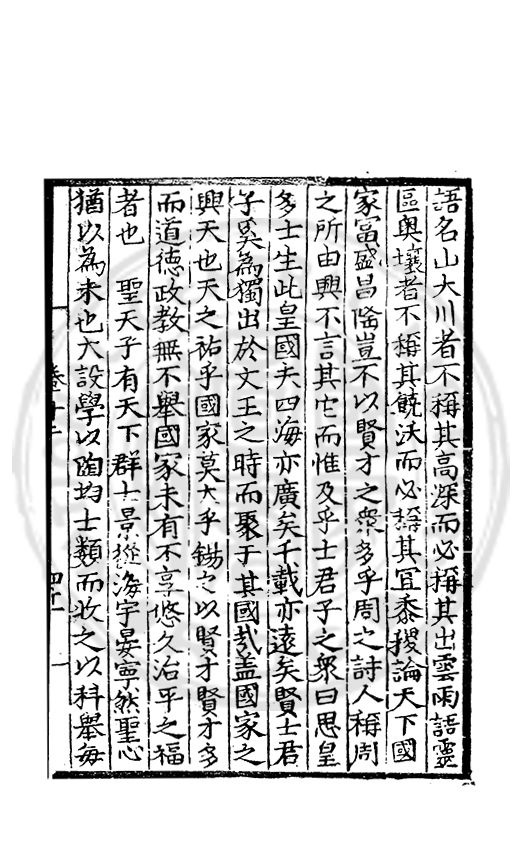 語名山大川者不稱其高深而必稱其出雲雨語靈
區奥壤者不稱其饒沃而必稱其冝黍稷論天下國
家富盛昌隆豈不以賢才之衆多乎周之詩人稱周
之所由興不言其它而惟及乎士君子之衆曰思皇
多士生此皇國夫四海亦廣矣千載亦遠矣賢士君
子奚為獨出於文王之時而聚于其國㢤盖國家之
興天也天之祐乎國家莫大乎錫之以賢才賢才多
而道德政教無不舉國家未有不享悠久治平之福
者也　聖天子有天下群士景從海宇晏寧然聖心
猶以為未也大設學以陶均士類而收之以科舉每
卷十二